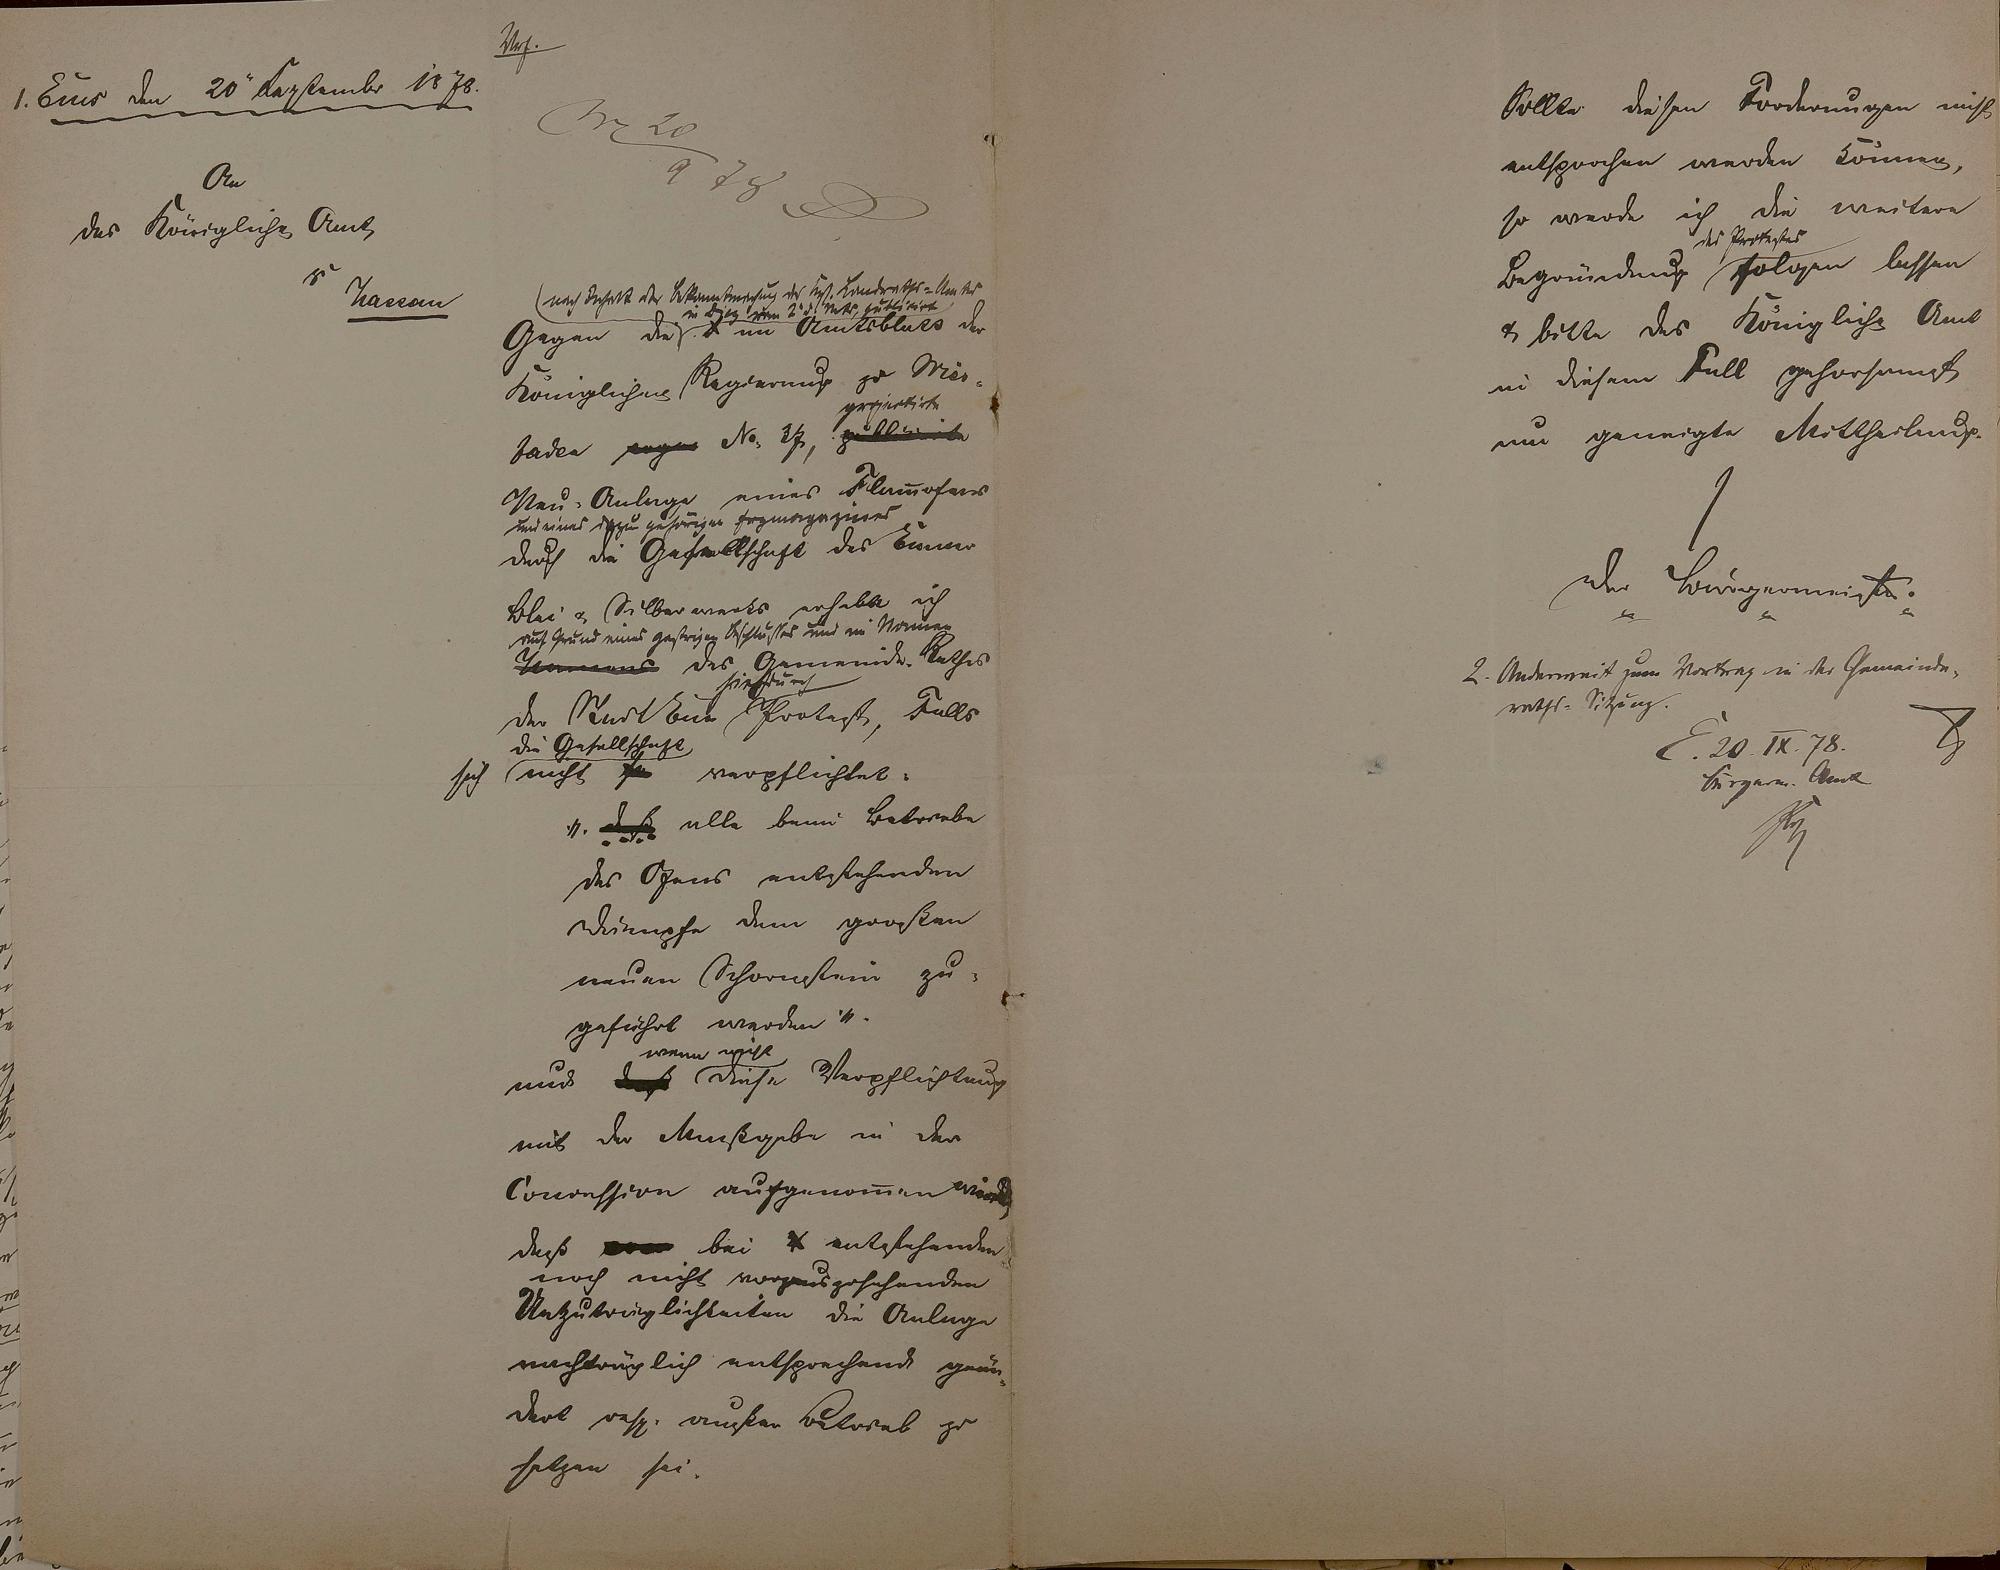 Verf.
1. Ems den 20" September 1878.
An
das Königliche Amt
Nassau
20
9 78
(nach Inhalt der Bekanntmachung des Kgl. Landraths-Amtes
in Diez vom 2. d. Mts. publicirte)
Gegen die im Amtsblatt der
Königlichen Regierung zu Wies-
baden No. 37, publicirte
projectirte
Neu-Anlage eines Flamofens
und eines dazu gehörigen Erzmagazines
durch die Gesellschaft des Emser
Blei & Silberwerks erhebe ich
auf Grund eines gestrigen Beschlusses und im Namen
Namens des Gemeinde-Rathes
hierdurch
der Stadt Ems Protest, Falls
die Gesellschaft
sich nicht verpflichtet:
". daß alle beim Betriebe
des Ofens entstehenden
Dämpfe dem großen
neuen Schornstein zu-
geführt werden".
wenn nicht
und daß diese Verpflichtung
mit der Maßgabe in der
Concession aufgenommen wird,
daß bei entstehenden
noch nicht vorausgesehenden
Unzuträglichkeiten die Anlage
nachträglich entsprechend geän-
dert resp. außer Betrieb zu
setzen sei.
Sollte diesen Forderungen nicht
entsprochen werden können,
so werde ich die weitere
des Protestes
Begründung folgen lassen
& bitte das Königliche Amt
in diesem Fall gehorsamst
um geneigte Mittheilung.
Der Bürgermeister.
2. Anderweit zum Vortrag in der Gemeinde-
raths-Sitzung.
E. 20. IX. 78.
Bürgerm. Amt